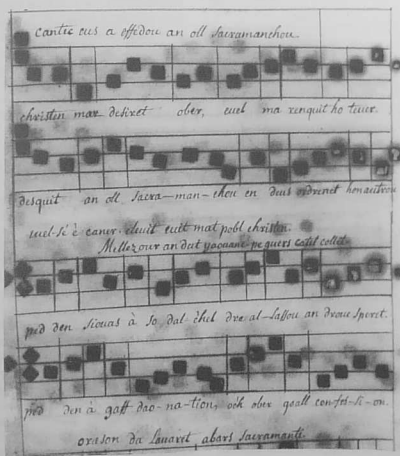 cantic eus a effedou an oll sacramanchou.
christen mar desiret ober, evel ma renquit ho tever.
desquit an oll sacra-man-chou en deus ordrenet hon autrou
evel-se è caner. cleuit evit mat pobl christen.
Mellezour an dut yaouanc pe quers catil collet.
ped den siouas à so, dal-chet dre al-lassou an drouc speret.
ped den à gaff dao-na-tion, och ober goall con-fes-si-on.
oreson da lavaret abars sacramanti.